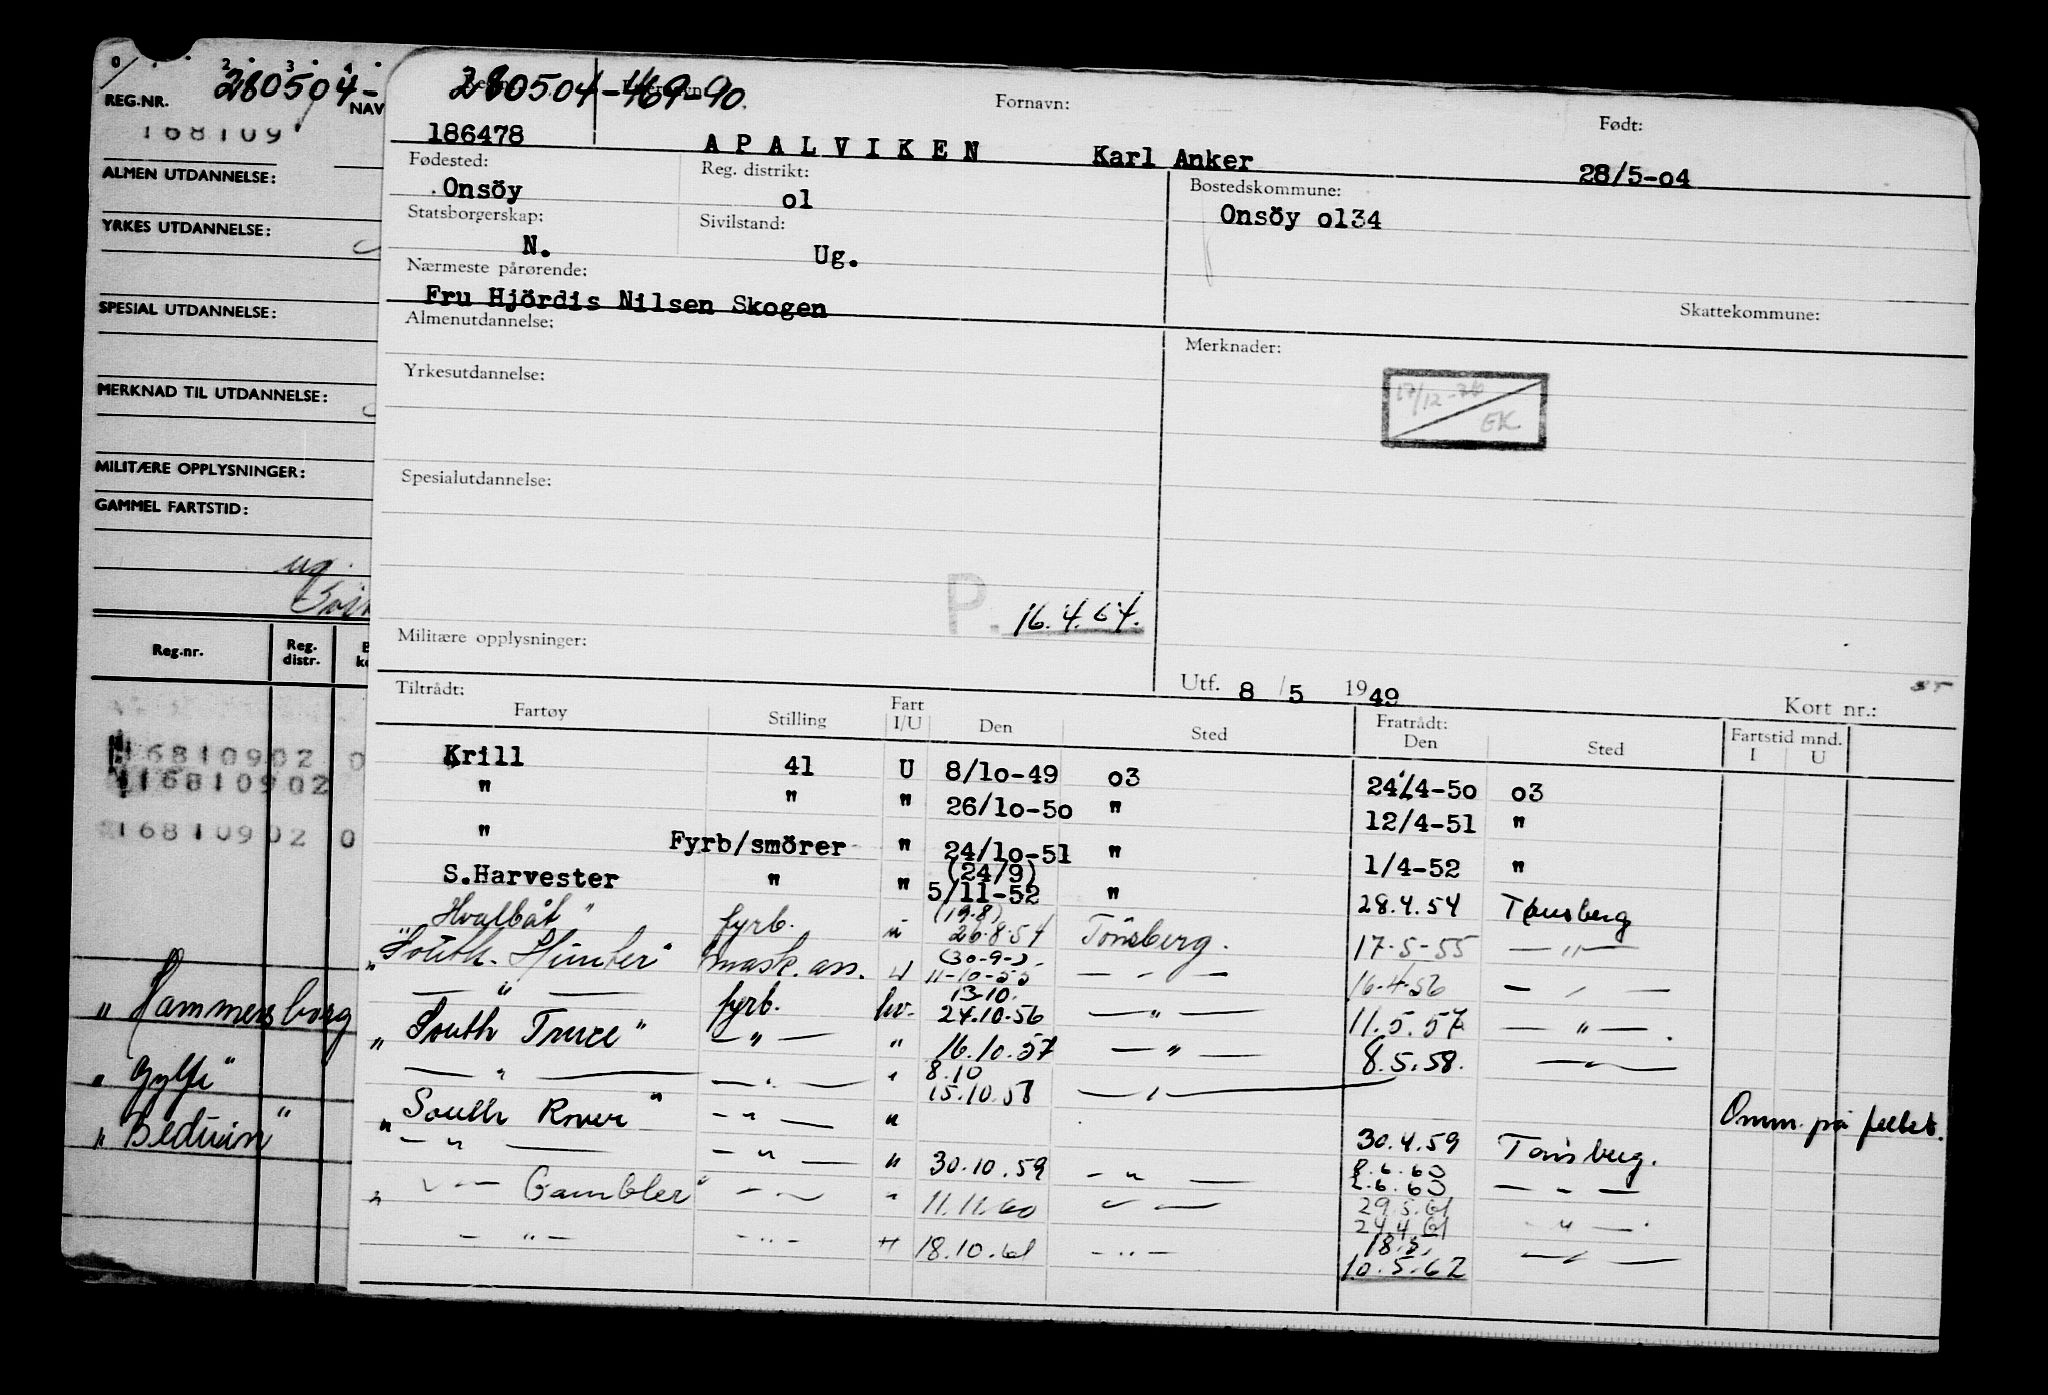 0 2 3 4
REG.NR. 280504- NAV
168109
ALMEN UTDANNELSE:
YRKES UTDANNELSE:
SPESIAL UTDANNELSE:
MERKNAD TIL UTDANNELSE:
MILITÆRE OPPLYSNINGER:
GAMMEL FARTSTID:
ug.
Reg.nr. Reg. distr.
16810902 0
16810902
16810902 0
" Hammersborg
" Gylfe"
" Beduin"
280504-469-90.
Fornavn: Født:
186478 APALVIKEN Karl Anker 28/5-o4
Fødested: Reg. distrikt: Bostedskommune:
Onsöy o1 Onsöy o134
Statsborgerskap: Sivilstand:
N. Ug.
Nærmeste pårørende:
Fru Hjördis Nilsen Skogen Skattekommune:
Almenutdannelse: Merknader:
17/12-70 EK
Yrkesutdannelse:
Spesialutdannelse:
P. 16.4.64.
Militære opplysninger:
Utf. 8/5 1949 Kort nr.:
Tiltrådt: Fratrådt: Fartstid mnd.
Fartøy Stilling Fart I/U Den Sted Den Sted I U
Krill 41 U 8/1o-49 o3 24/4-5o o3
" " " 26/1o-5o " 12/4-51 "
" Fyrb/smörer " 24/1o-51 " 1/4-52 "
(24/9)
S.Harvester " " 5/11-52 " 28.4.54 Tønsberg
(19.8)
"Hvalbåt" fyrb. u 26.8.54 Tönsberg. 17-5-55 — " —
(30-9-)
"South. Hunter" mask. ass. u 11-10-55 — " — 16.4.56 — " —
13.10.
— " — fyrb. hv. 24.10.56 — " — 11.5.57 — " — .
" South Truce" — " — " 16.10.57 — " — 8.5.58. — " —
8.10
— " — — " — " 15.10.58 — " —
" South Rover" — " — " 30.4.59 Tönsberg. Omm. på feltet.
— " — — " — " 30.10.59 — " — 8.6.60
2.6.60 — " —
" — " — Gambler" — " — " 11.11.60 — " — 29.5.61
24.4.61 — " — .
— " — — " — " 18.10.61 — " — 18.5.
10.5.62 — " —